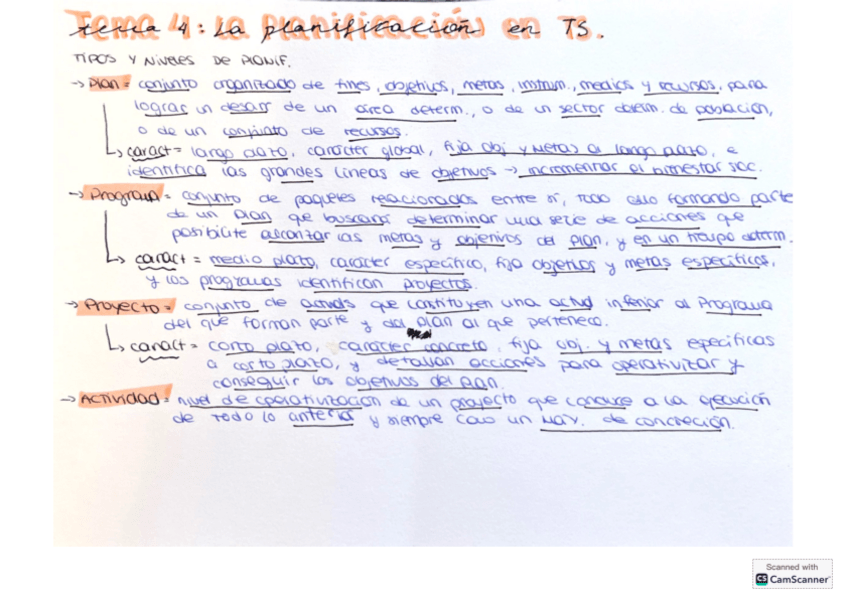 Tema 4: La planificación en TS.
TIPOS Y NIVELES DE PLANIF.
→ Plan = conjunto organizado de fines, objetivos, metas, instrum., medios y recursos, para
lograr un desarr. de un área determ., o de un sector determ. de población,
o de un conjunto de recursos.
↳ caract = largo plazo, carácter global, fija obj y metas a largo plazo, e
identifica las grandes líneas de objetivos → incrementar el bienestar soc.
→ Programa = conjunto de paquetes relacionados entre sí, todo ello formando parte
de un plan que buscará determinar una serie de acciones que
posibilite alcanzar las metas y objetivos del plan, y en un tiempo determ.
↳ caract = medio plazo, carácter específico, fija objetivos y metas específicas,
y los programas identifican proyectos.
→ Proyecto = conjunto de activds que constituyen una activd inferior al Programa
del que forman parte y del plan al que pertenece.
↳ caract = corto plazo, carácter concreto, fija obj. y metas específicas
a corto plazo, y detallan acciones para operativizar y
conseguir los objetivos del plan.
→ Actividad = nivel de operativización de un proyecto que conduce a la ejecución
de todo lo anterior y siempre con un may. de concreción.
Scanned with
CS CamScanner